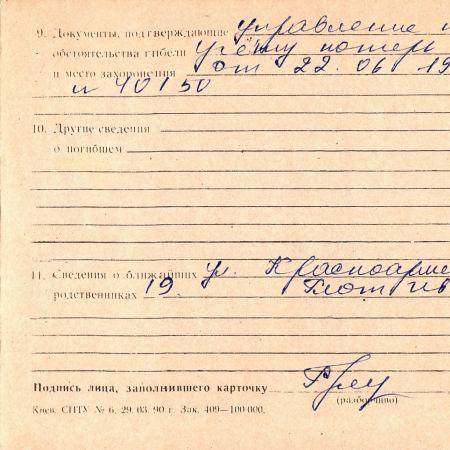 9. Документы, подтверждающие управление п
обстоятельства гибели учёту потерь
и место захоронения от 22.06 19
и 40150
10. Другие сведения
о погибшем
11. Сведения о ближайших ул. Красноарме
родственниках 19.
Подпись лица, заполнившего карточку
(разборчиво)
Киев. СПТУ № 6, 29. 03. 90 г. Зак. 409—100 000.